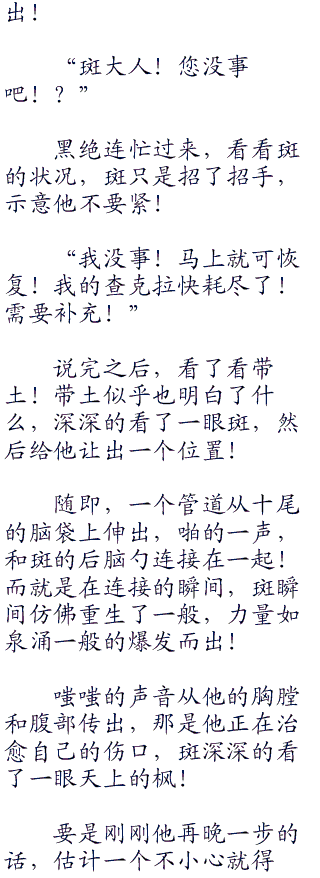 出！
“斑大人！您没事
吧！？”
黑绝连忙过来，看看斑
的状况，斑只是招了招手，
示意他不要紧！
“我没事！马上就可恢
复！我的查克拉快耗尽了！
需要补充！”
说完之后，看了看带
土！带土似乎也明白了什
么，深深的看了一眼斑，然
后给他让出一个位置！
随即，一个管道从十尾
的脑袋上伸出，啪的一声，
和斑的后脑勺连接在一起！
而就是在连接的瞬间，斑瞬
间仿佛重生了一般，力量如
泉涌一般的爆发而出！
嗤嗤的声音从他的胸膛
和腹部传出，那是他正在治
愈自己的伤口，斑深深的看
了一眼天上的枫！
要是刚刚他再晚一步的
话，估计一个不小心就得